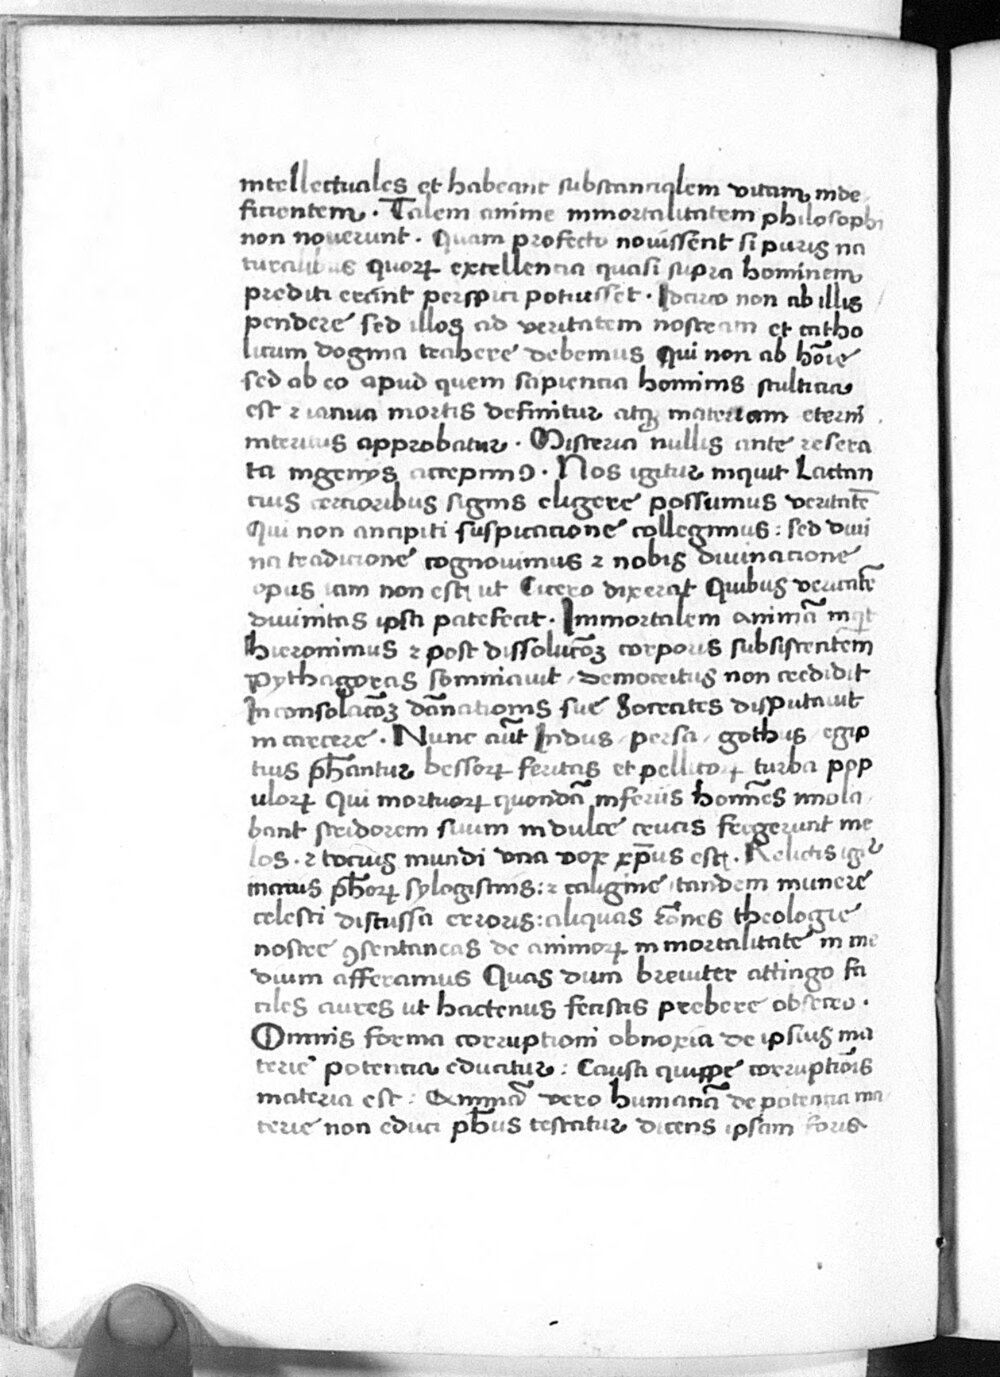 intellectuales et habeant substantialem vitam inde
ficientem. Talem anime immortalitatem philosophi
non noverunt. Quam profecto novissent si puris na
turalibus quoꝝ excellentia quasi supra hominem
prediti erant perspici potuisset. Idcirco non ab illis
pendere sed illos ad veritatem nostram et catho
licum dogma trahere debemus Qui non ab ho͞ie
sed ab eo apud quem sapientia hominis stultitia
est ⁊ ianua mortis definitur atqꝫ materiam eterni
interitus approbatur. Misteria nullis ante resera
ta ingenijs accepimꝰ. Nos igitur inquit Lactan
tius certioribus signis eligere possumus veritate͞
Qui non ancipiti suspicatione collegimus: sed divi
na traditione cognovimus ⁊ nobis divinatione
opus iam non est ut Cicero dixerat Quibus veritate͞
divinitas ipsa patefecit. Immortalem anima͞ inq͛t
hieronimus ⁊ post dissoluto͞ꝫ corporis subsistente͞m
pythagoras somniavit / democritus non credidit
In consolato͞ꝫ da͞nationis sue Socrates disputavit
in carcere. Nunc au͞t Indus / persa / gothus / egip
tius ph͞antur bessoꝝ feritas et pellitoꝝ turba pop
uloꝝ Qui mortuoꝝ quonda͞ inferiis homi͞es imola
bant stridorem suum in dulce crucis fregerunt me
los. ⁊ totius mundi una vox xp͞us est. Relictis igit᷑
inanius ph͞oꝝ sylogismis: ⁊ caligine tandem munere
celesti discussa erroris: aliquas ro͞nes theologie
nostre ꝯsentaneas de animoꝝ immortalitate in me
dium afferamus Quas dum breviter attingo fa
ciles aures ut hactenus fecistis prebere obsecro.
Omnis forma corruptioni obnoxia de ipsius ma
terie potentia educitur: Causa quippe corruptio͞is
materia est: A͞nima͞ vero humana͞ de potentia ma
terie non educi ph͞us testatur dicens ipsam foris